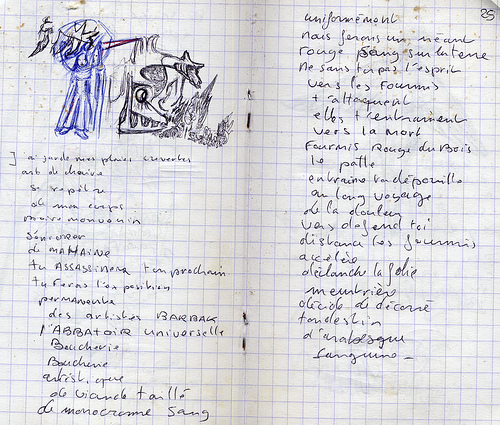 j'ai garde mes plaies ouvertes
art de chaire
se repêtre
de mon corps
mordre mon venin
Sorcerer
de MAHAINE
tu ASSASSINERA ton prochain
tu feras l'exposition
permanente
des artistes BARBAK
l'ABBATOIR universelle
Boucherie
Boucherie
artistique
de viande taillé
de monocrome Sang
25
uniformément
nous ferons un néant
rouge Sang sur la terre
Ne sans tu pas l'esprit
vers les Fourmis
t'attaquent
elles t'entrainent
vers la mort
Fourmis Rouge du Bois
le patte
entraine ta dépouille
au long voyage
de la douleur
vers defend toi
distance les fourmis
accélée
déclanche la folie
meurtrière
décide de décoré
ton destin
d'arabesque
Sanguine –